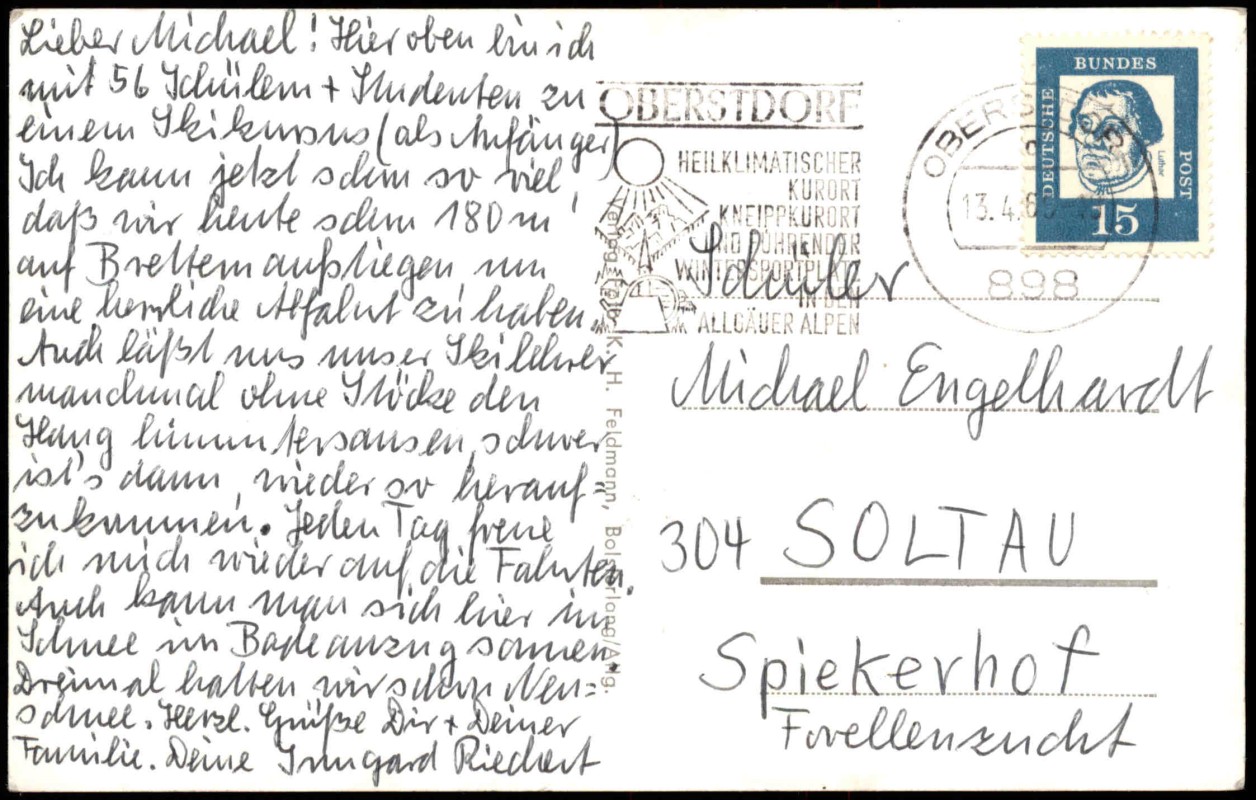 Lieber Michael! Hier oben bin ich
mit 56 Schülern + Studenten zu
einem Skikursus (als Anfänger)
Ich kann jetzt schon so viel,
daß wir heute schon 180 m
auf Brettern aufstiegen um
eine herrliche Abfahrt zu haben.
Auch läßt uns unser Skilehrer
manchmal ohne Stöcke den
Hang hinuntersausen, schwer
ist's dann, wieder so herauf=
zukommen. Jeden Tag freue
ich mich wieder auf die Fahrten.
Auch kann man sich hier im
Schnee im Badeanzug sonnen.
Dreimal hatten wir schon Neu=
schnee. Herzl. Grüße Dir + Deiner
Familie. Deine Irmgard Riechert
Verlag Foto K. H. Feldmann, Bolsterlang/Allg.
OBERSTDORF
HEILKLIMATISCHER
KURORT
KNEIPPKURORT
UND FÜHRENDER
WINTERSPORTPLATZ
IN DEN
ALLGÄUER ALPEN
OBERSTDORF
13.4.65
898
DEUTSCHE
BUNDES
POST
Luther
15
Schüler
Michael Engelhardt
304 SOLTAU
Spiekerhof
Forellenzucht